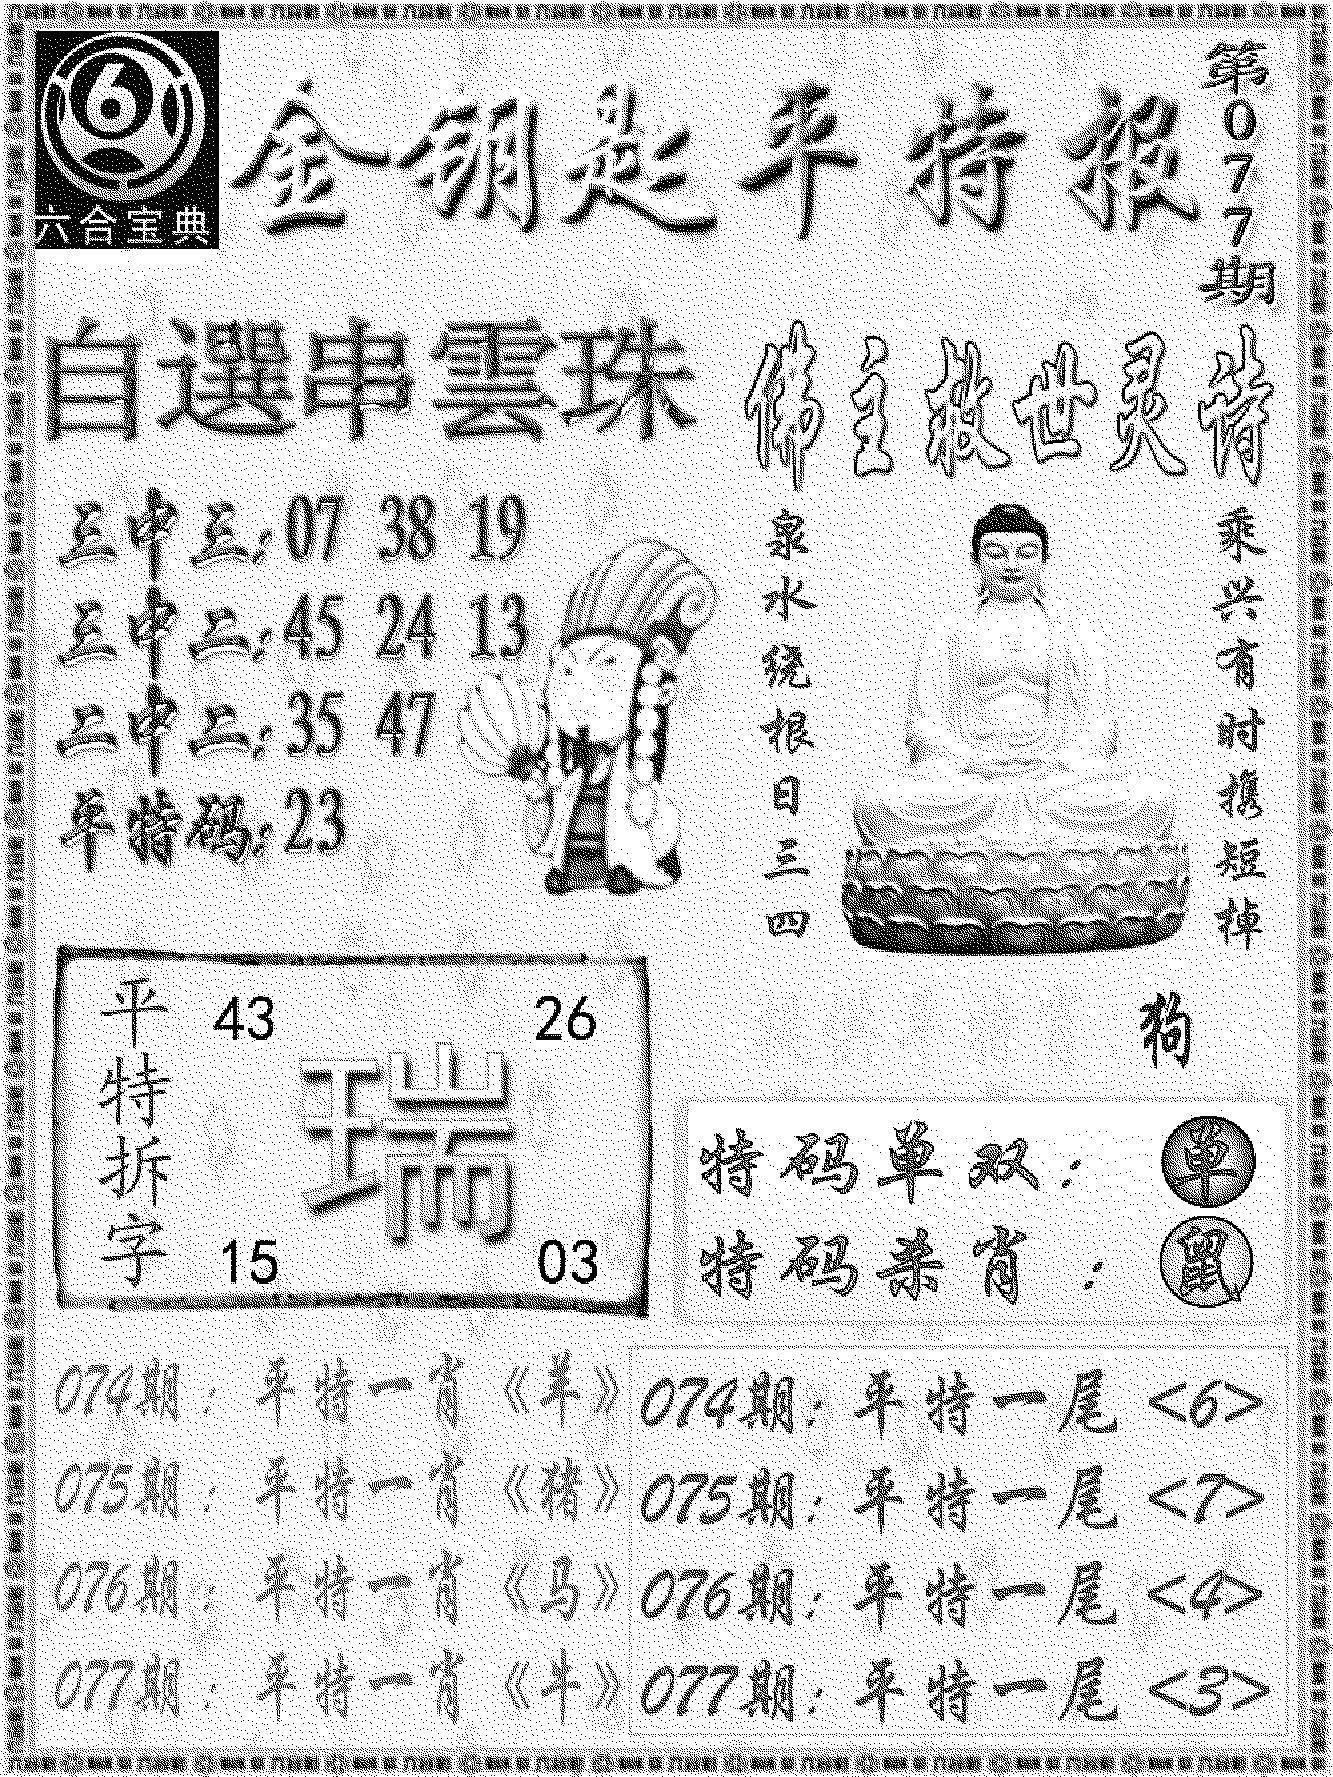 六合宝典
金钥匙平特报
第077期
自選串雲珠
三中三：07 38 19
三中二：45 24 13
二中二：35 47
平特码：23
佛主救世灵诗
乘兴有时携短棹
泉水绕根日三四
狗
平特拆字
43 26
瑞
15 03
特码单双：单
特码杀肖：鼠
074期：平特一肖《羊》
075期：平特一肖《猪》
076期：平特一肖《马》
077期：平特一肖《牛》
074期：平特一尾<6>
075期：平特一尾<7>
076期：平特一尾<4>
077期：平特一尾<3>